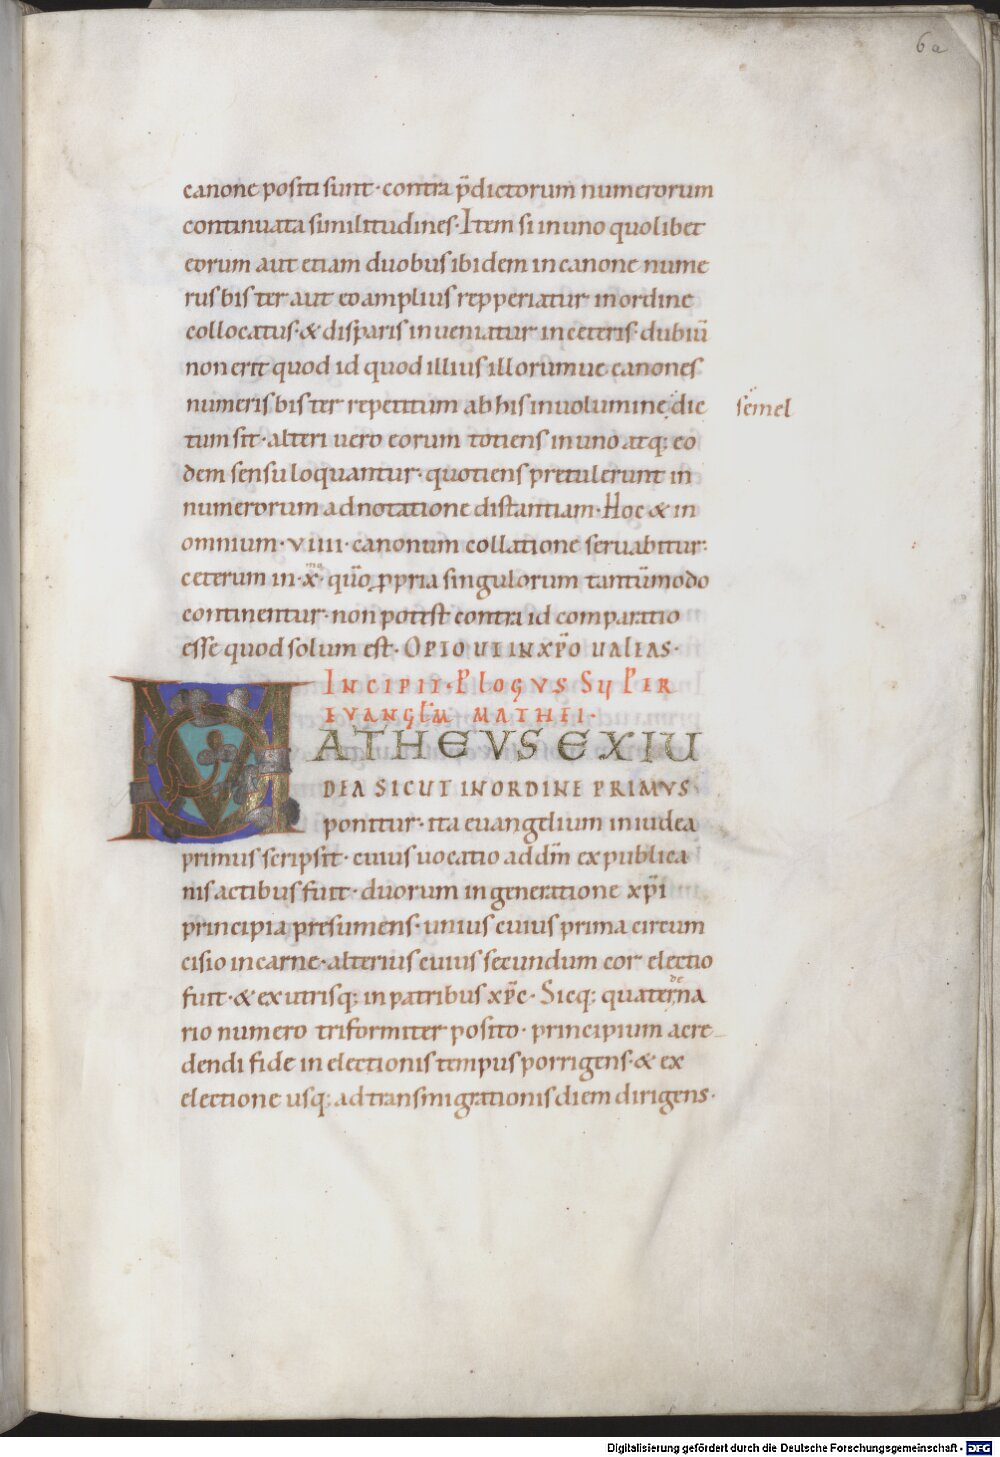 6a
canone positi sunt · contra p̄dictorum numerorum
continuata similitudines · Item si in uno quolibet
eorum aut etiam duobus ibidem in canone nume
rus bis ter aut eo amplius repperiatur in ordine
collocatus · & disparis inueniatur in ceteris · dubiū
non erit quod id quod illius illorumue canones
numeris bis ter repetitum ab his in uolumine dic
semel
tum sit · alteri uero eorum totiens in uno atq; eo
dem sensu loquantur · quotiens pretulerunt in
numerorum adnotatione distantiam · Hoc & in
omnium · viiii · canonum collatione seruabitur:
ceterum in · x̄ᵐᵒ · quō ꝓpria singulorum tantūmodo
continentur · non potest contra id comparatio
esse quod solum est · OPTO UT IN XP̄O UALEAS ·
INCIPIT · PLOGUS SUPER
EVANGLM̄ MATHEI ·
MATHEVS EX IU
DEA SICUT IN ORDINE PRIMVS
ponitur · ita euangelium in iudea
primus scripsit · cuius uocatio ad dm̄ ex publica
nis actibus fuit · duorum in generatione xp̄i
principia presumens · unius cuius prima circum
cisio in carne · alterius cuius secundum cor electio
fuit · & ex utrisq; in patribus xp̄c · Sicq; quaterna
de
rio numero triformiter posito · principium a cre
dendi fide in electionis tempus porrigens · & ex
electione usq; ad transmigrationis diem dirigens ·
Digitalisierung gefördert durch die Deutsche Forschungsgemeinschaft - DFG